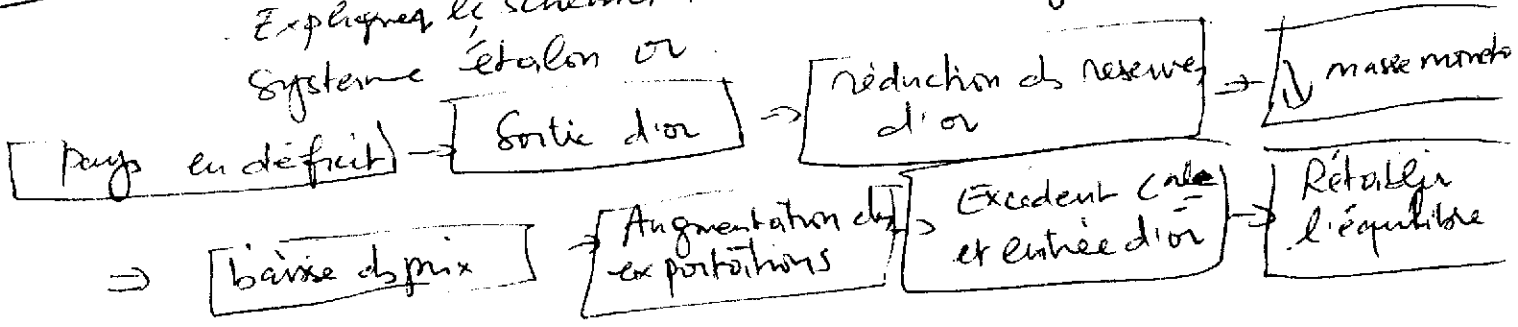 Expliquer le schéma
Système étalon or
Pays en déficit → Sortie d'or → réduction ds reserves d'or → ↓ masse monét
⇒ baisse ds prix → Augmentation des exportations → Excedent Cale et entrée d'or → Rétablir l'équilibre